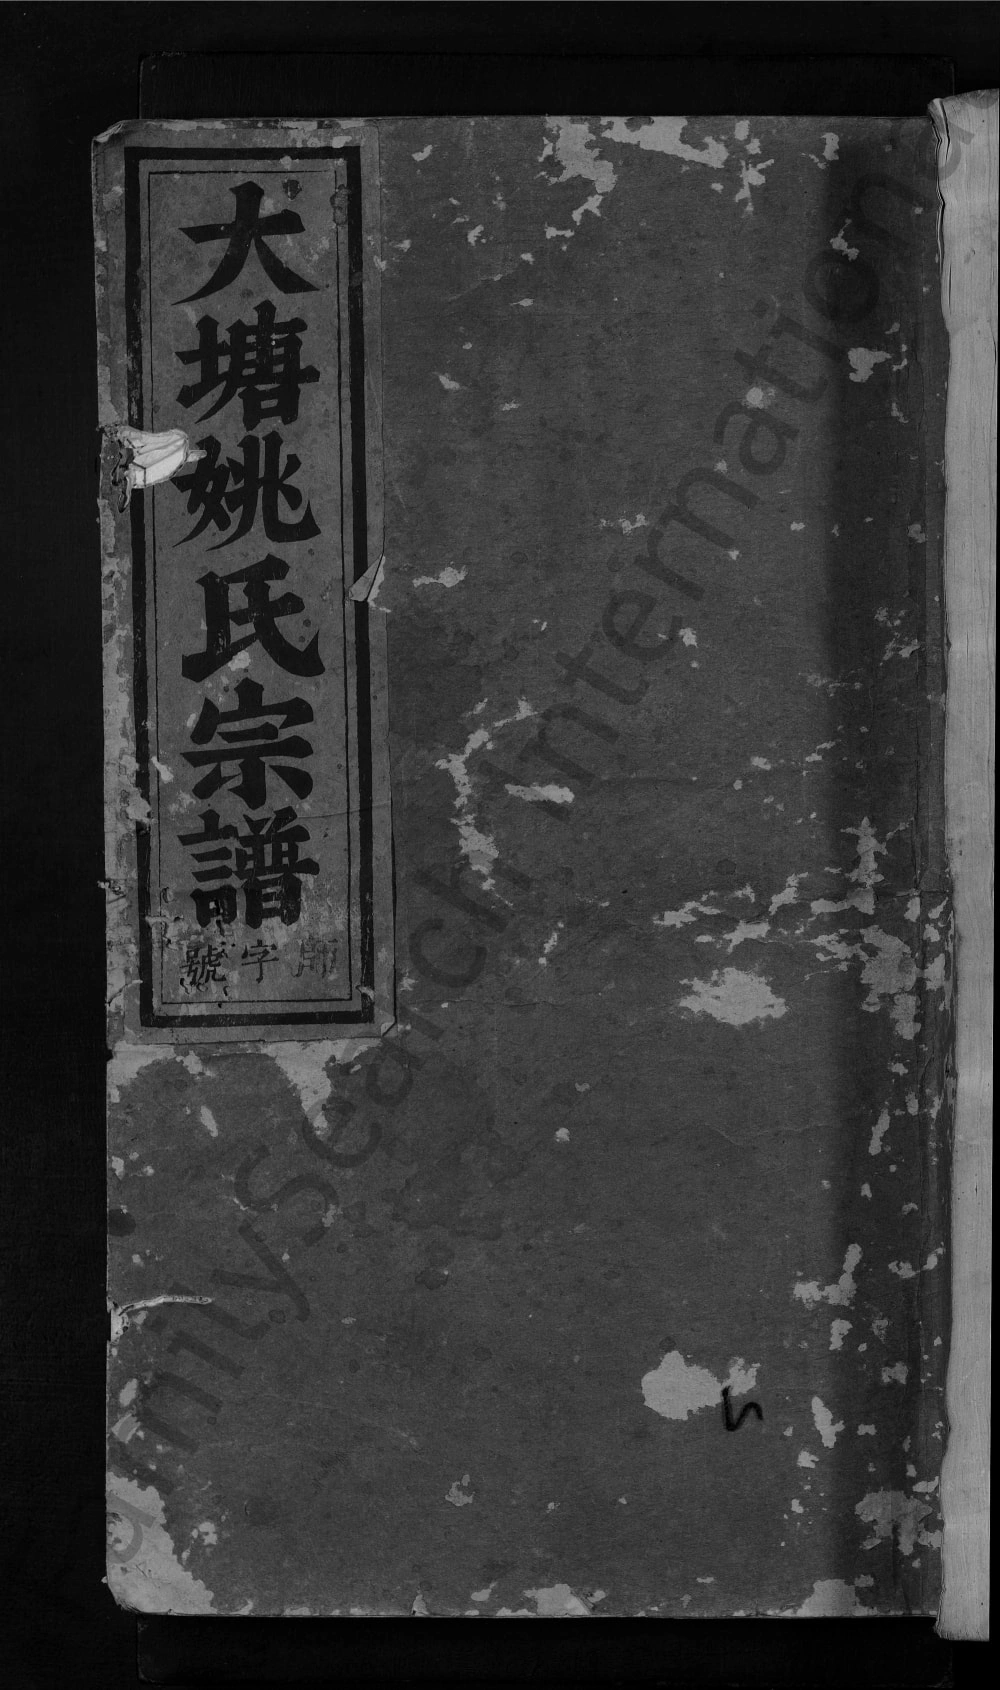 大塘姚氏宗譜
師字號
amilySearch International